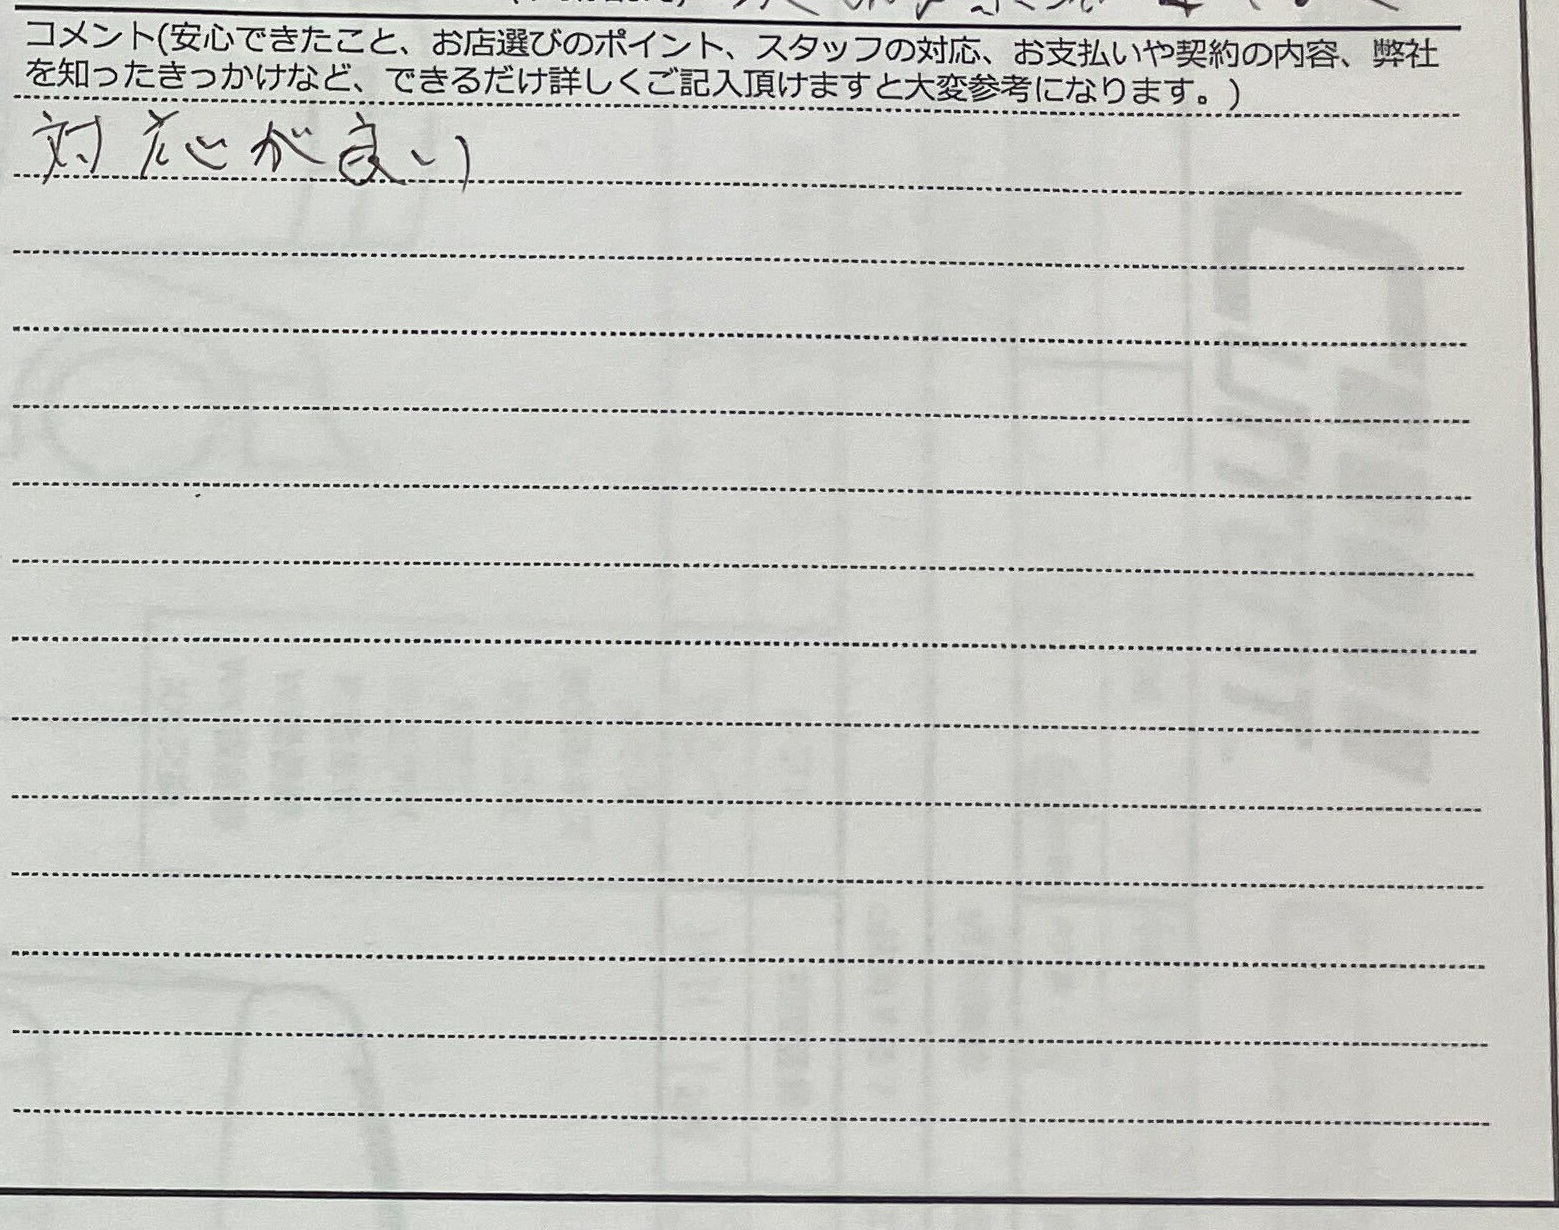 コメント(安心できたこと、お店選びのポイント、スタッフの対応、お支払いや契約の内容、弊社
を知ったきっかけなど、できるだけ詳しくご記入頂けますと大変参考になります。)
対応が良い